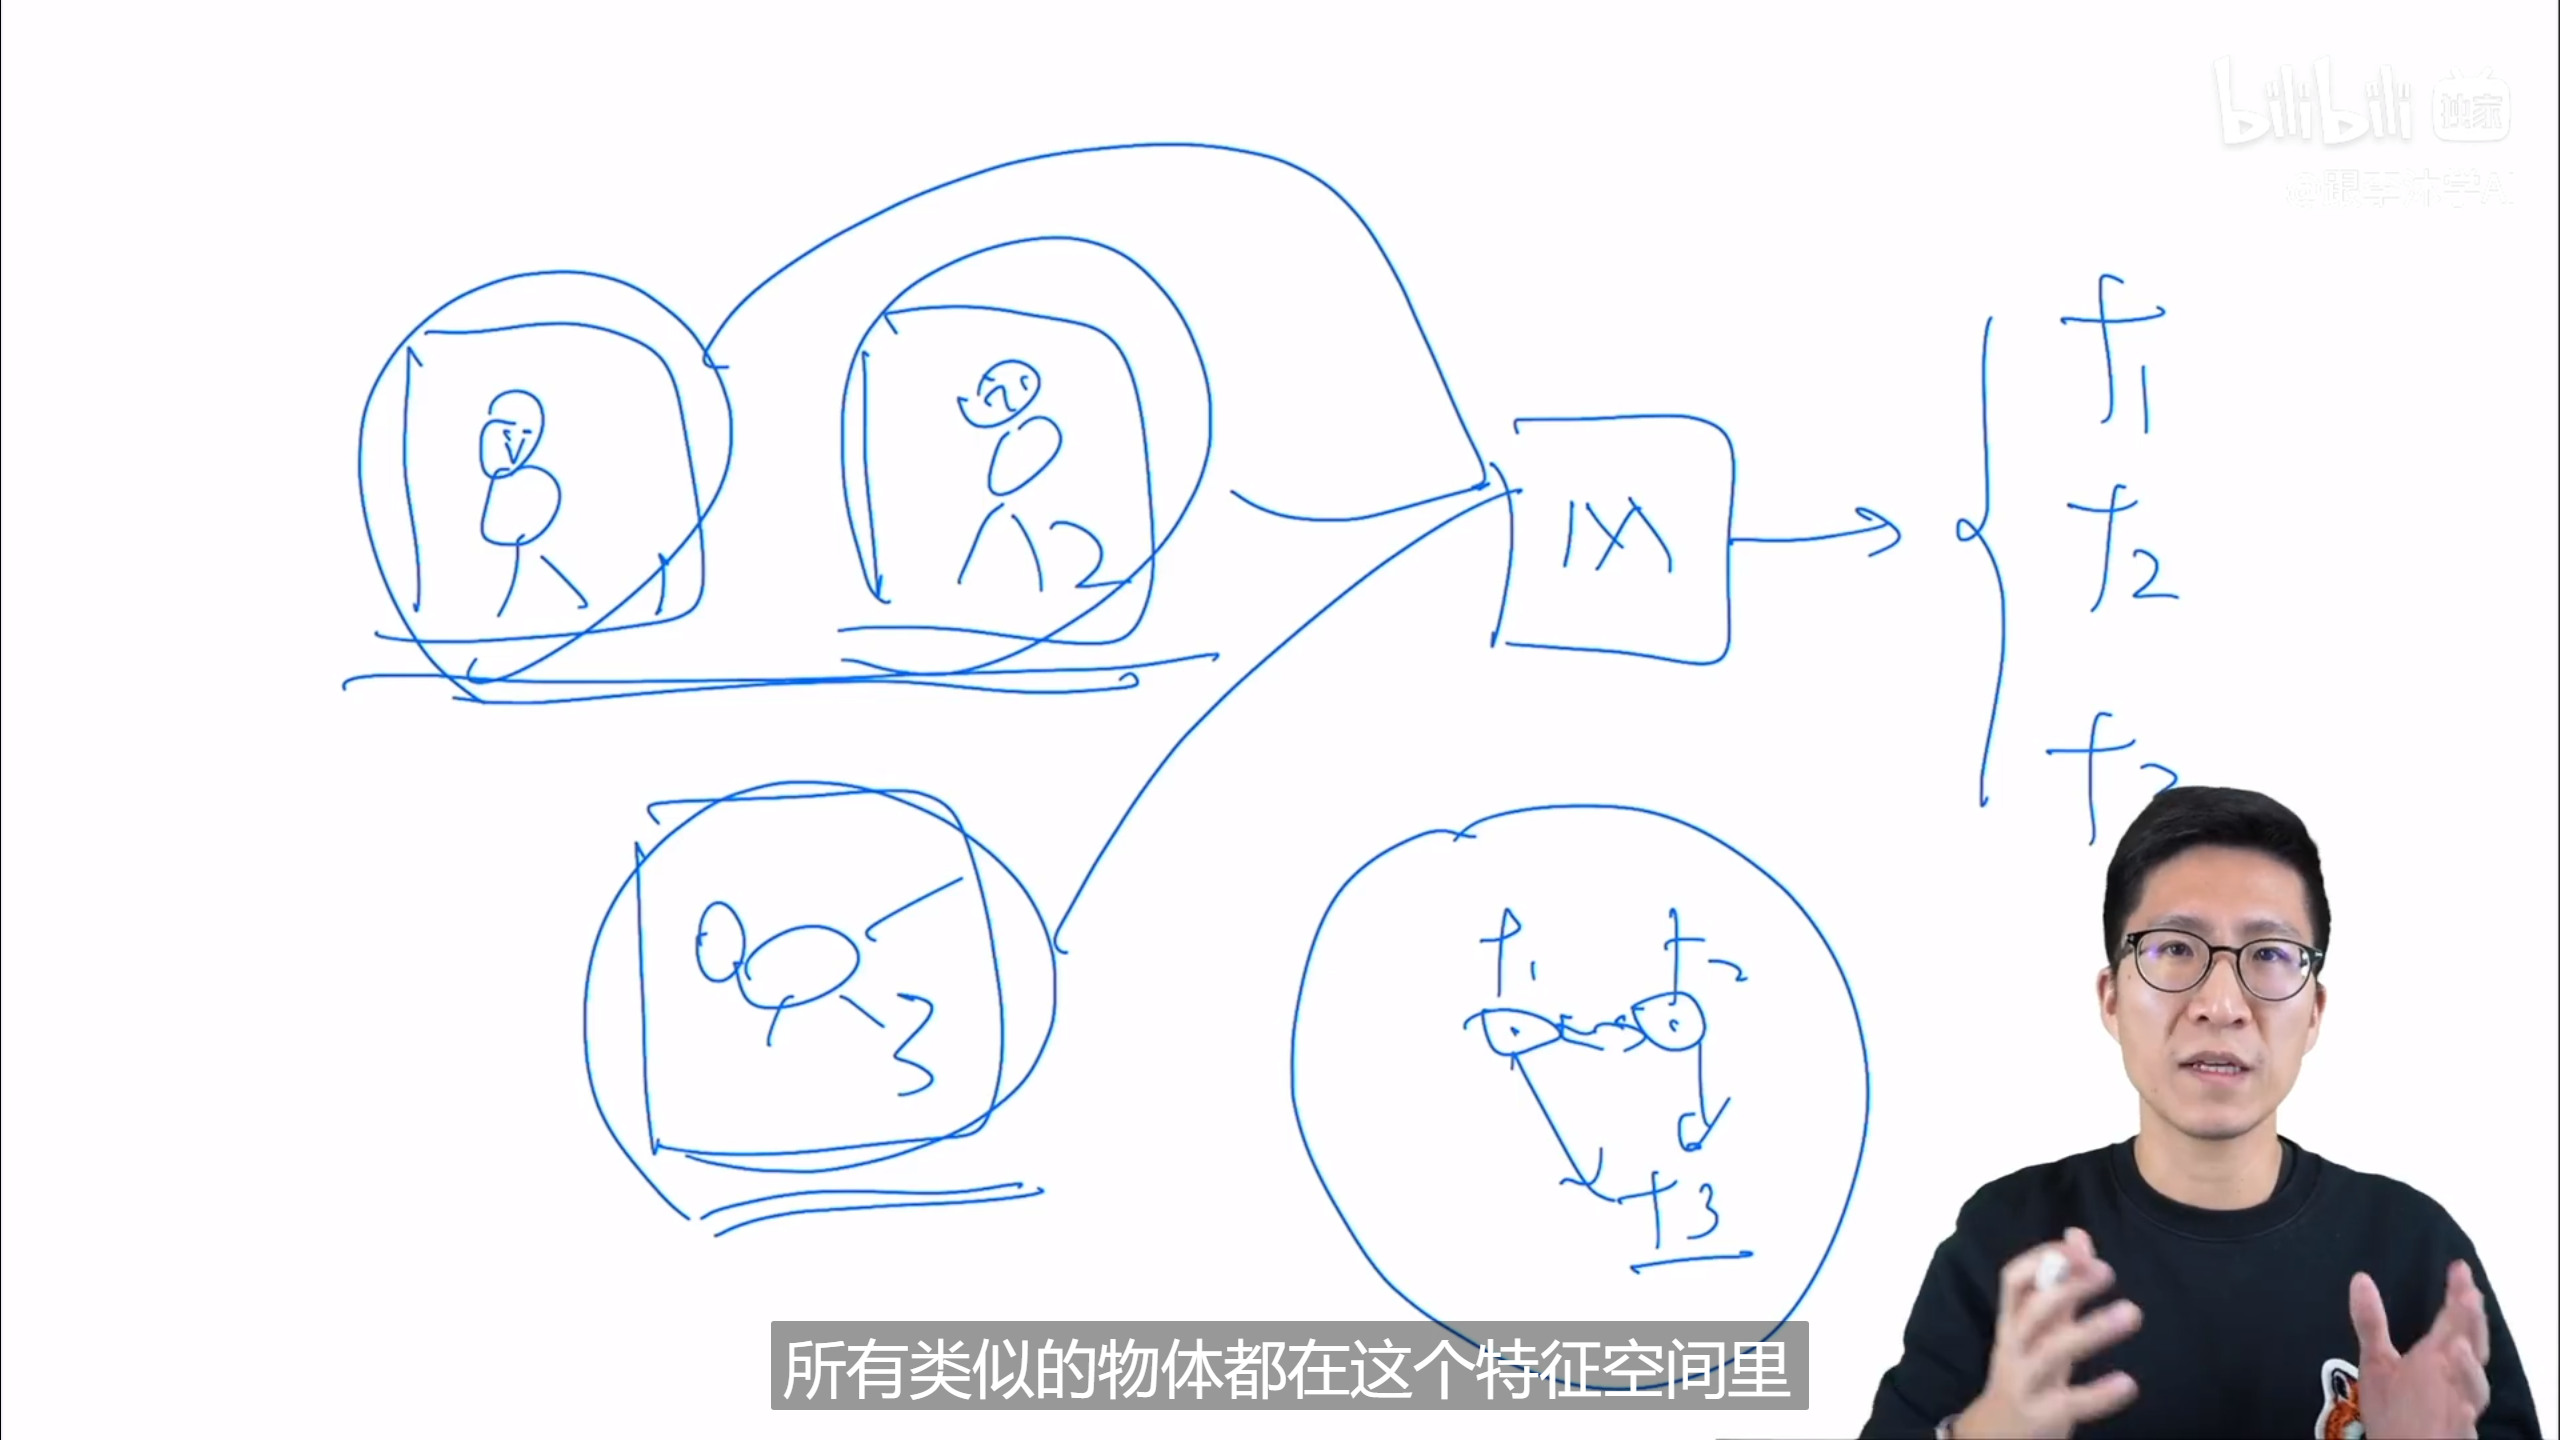 bilibili 独家
@跟李沐学AI
f1
1
2
M
f2
f3
3
f1
f2
f3
所有类似的物体都在这个特征空间里